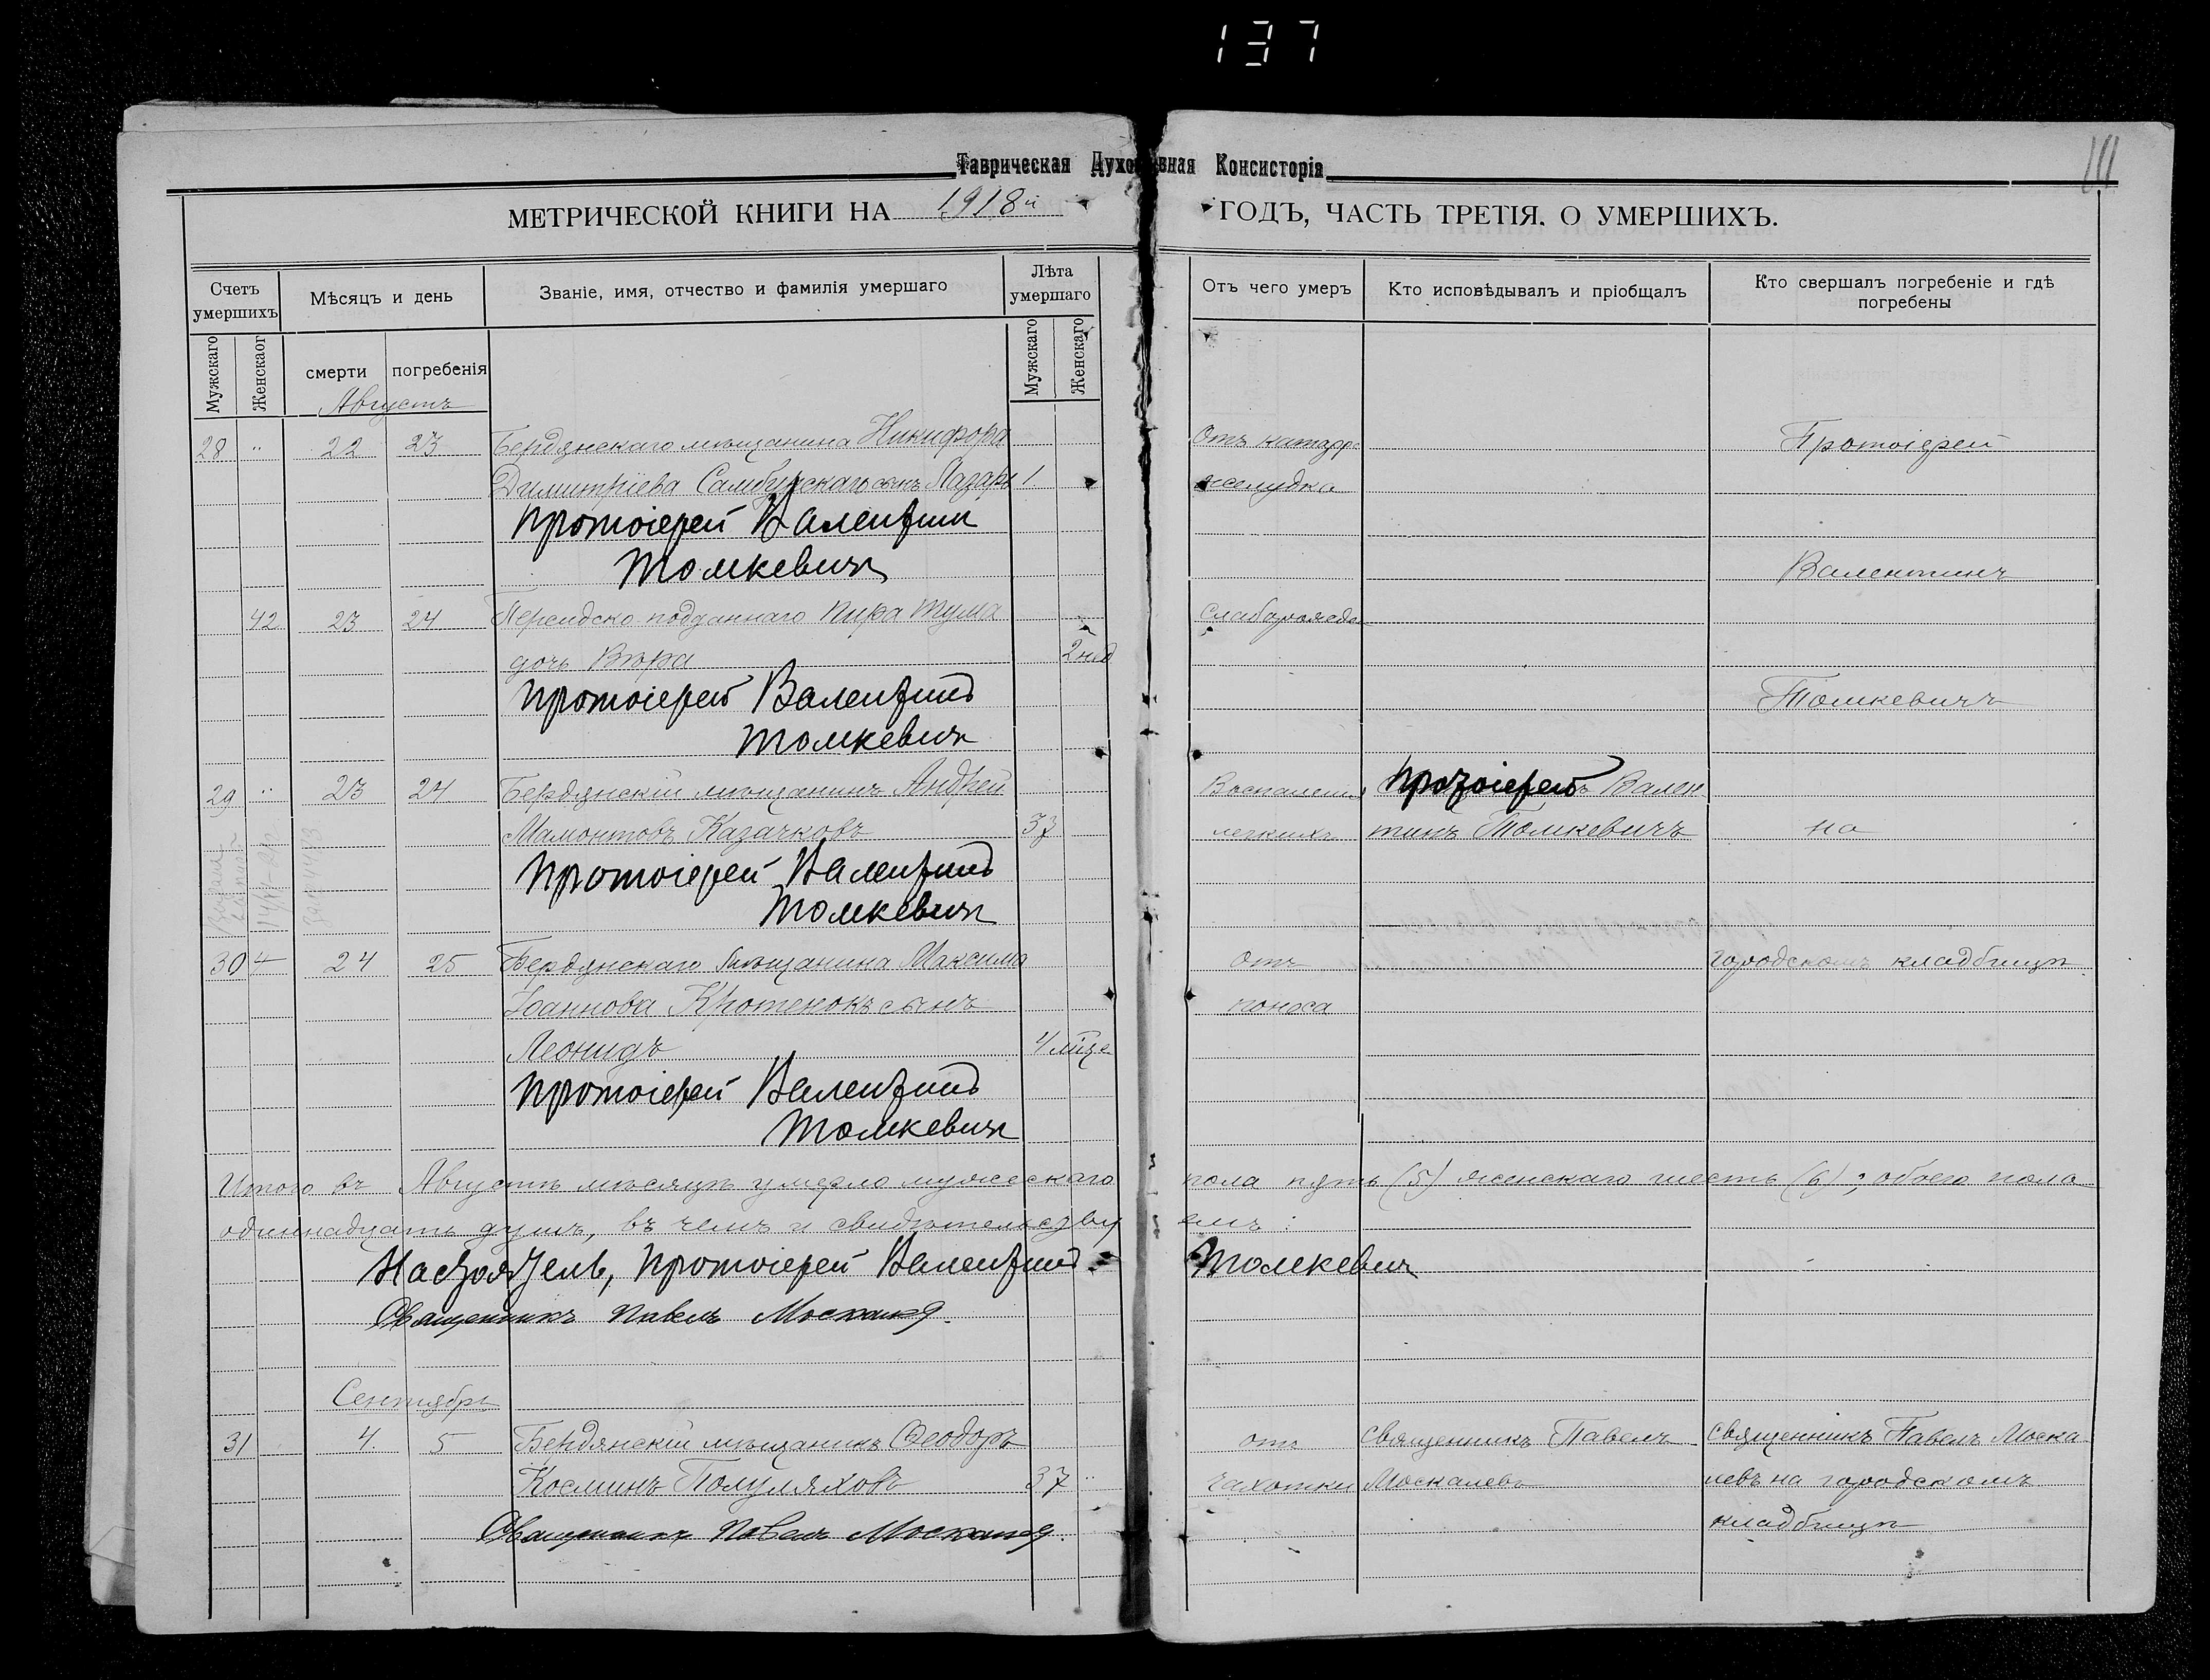 137
111
Таврическая Духовная Консисторія
МЕТРИЧЕСКОЙ КНИГИ НА 1918й ГОДЪ, ЧАСТЬ ТРЕТІЯ. О УМЕРШИХЪ.
Счетъ умершихъ
Мѣсяцъ и день
Званіе, имя, отчество и фамилія умершаго
Лѣта умершаго
Отъ чего умеръ
Кто исповѣдывалъ и пріобщалъ
Кто свершалъ погребеніе и гдѣ погребены
Мужскаго
Женскаог
смерти
погребенія
Мужскаго
Женскаго
Августъ
28 " 22 23 Бердянскаго мѣщанина Никифора Отъ катарра Протоіерей
Димитріева Самбурскаго сынъ Лазарь 1 желудка
Протоіерей Валентинъ
Томкевичъ Валентинъ
42 23 24 Персидско-подданнаго Пира Тума
дочь Вѣра 2 нед
Протоіерей Валентинъ Томкевичъ
Томкевичъ
29 " 23 24 Бердянскій мѣщанинъ Андрей Воспаленія Протоіерей Вален
Мамонтовъ Казачковъ 37 легкихъ тинъ Томкевичъ на
Протоіерей Валентинъ
Томкевичъ
30 24 25 Бердянскаго мѣщанина Максима Отъ городскомъ кладбищѣ
Іоаннова Кротенокъ сынъ поноса
Леонидъ 4 мѣс
Протоіерей Валентинъ
Томкевичъ
Итого въ Августѣ мѣсяцѣ умерло мужескаго пола пять (5) женскаго шесть (6); обоего пола
одиннадцать душъ, въ чемъ и свидѣтельствуемъ:
Настоятель, Протоіерей Валентинъ Томкевичъ
Священникъ Павелъ Москалевъ
Сентябрь
31 4 5 Бердянскій мѣщанинъ Ѳеодоръ отъ Священникъ Павелъ Священникъ Павелъ Моска
Косминъ Полуляховъ 37 " чахотки Москалевъ левъ на городскомъ
Священникъ Павелъ Москалевъ кладбищѣ